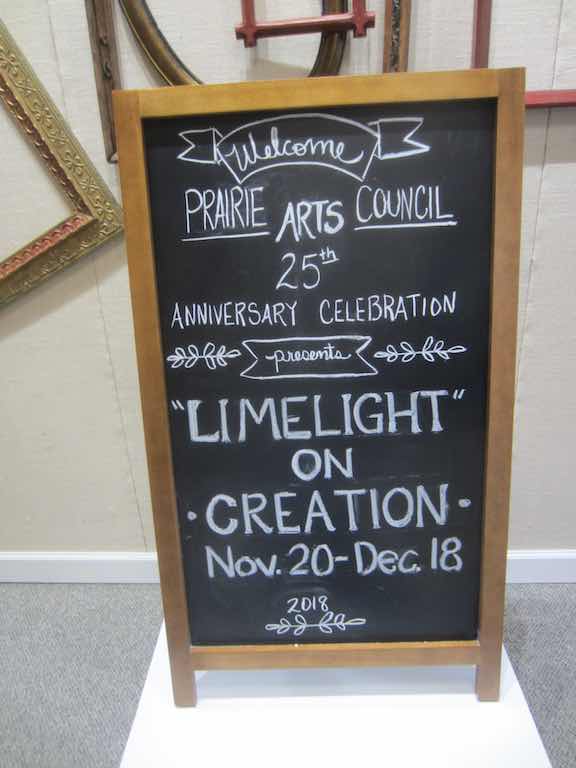 Welcome
PRAIRIE ARTS COUNCIL
25th
ANNIVERSARY CELEBRATION
presents
"LIMELIGHT"
ON
·CREATION·
Nov. 20-Dec. 18
2018